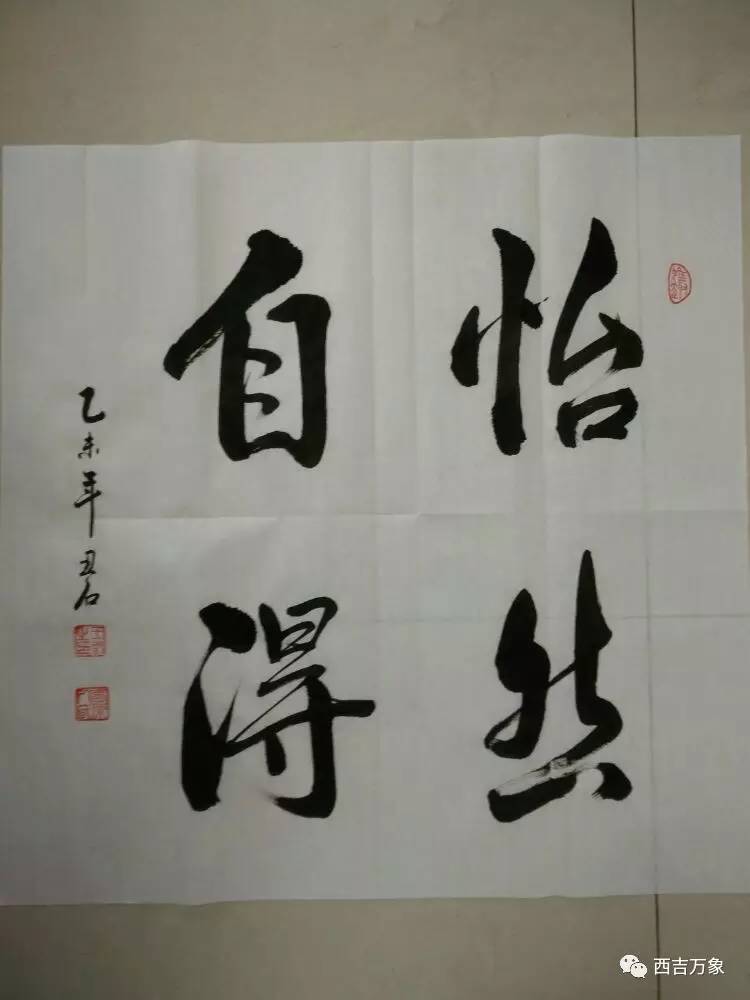 怡然
自得
乙未年丑石
西吉万象